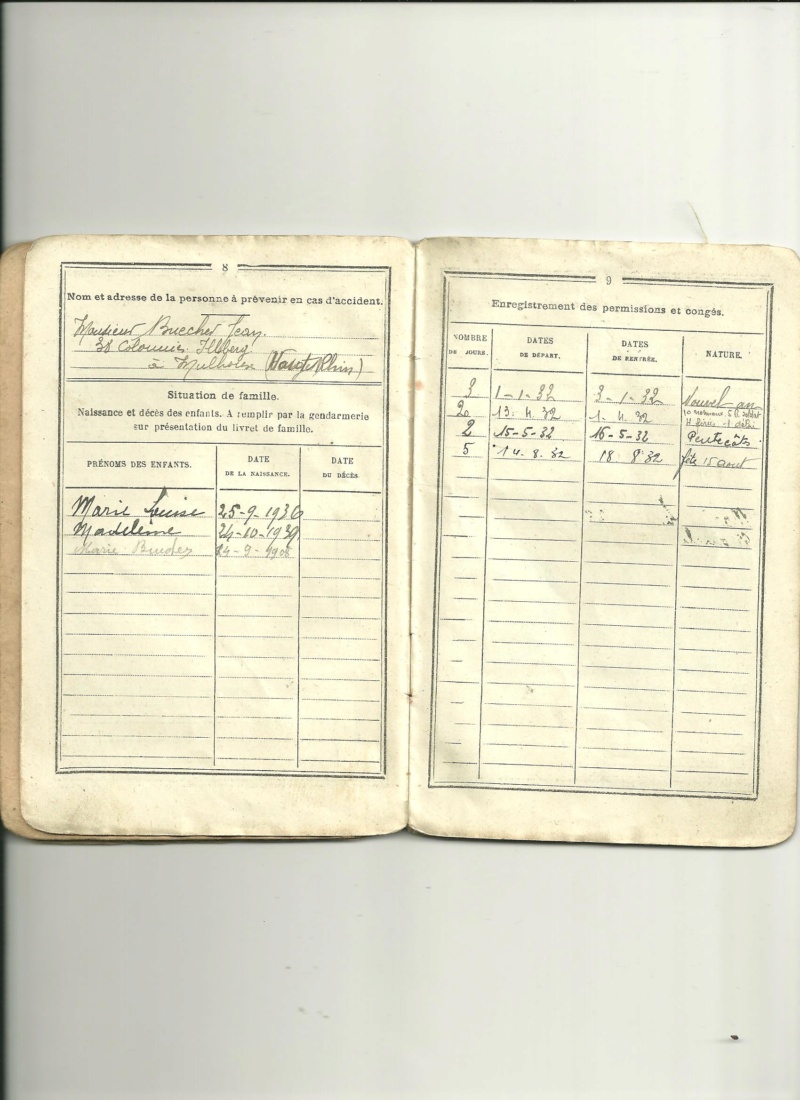 8
Nom et adresse de la personne à prévenir en cas d'accident.
Monsieur Buecher Jean
38 Colonnies Illberg
à Mulhouse (Haut Rhin)
Situation de famille.
Naissance et décès des enfants. A remplir par la gendarmerie
sur présentation du livret de famille.
PRÉNOMS DES ENFANTS. DATE DE LA NAISSANCE. DATE DU DÉCÈS.
Marie Louise 25-9-1936
Madeleine 24-10-1939
Marie 14-9-
9
Enregistrement des permissions et congés.
NOMBRE DE JOURS. DATES DE DÉPART. DATES DE RENTRÉE. NATURE.
3 1-1-32 3-1-32 Nouvel an
20 13. 4. 32 1- 4. 32
2 15-5-32 16-5-32 Pentecôte
5 14. 8. 32 18 8 32 fête 15 aout